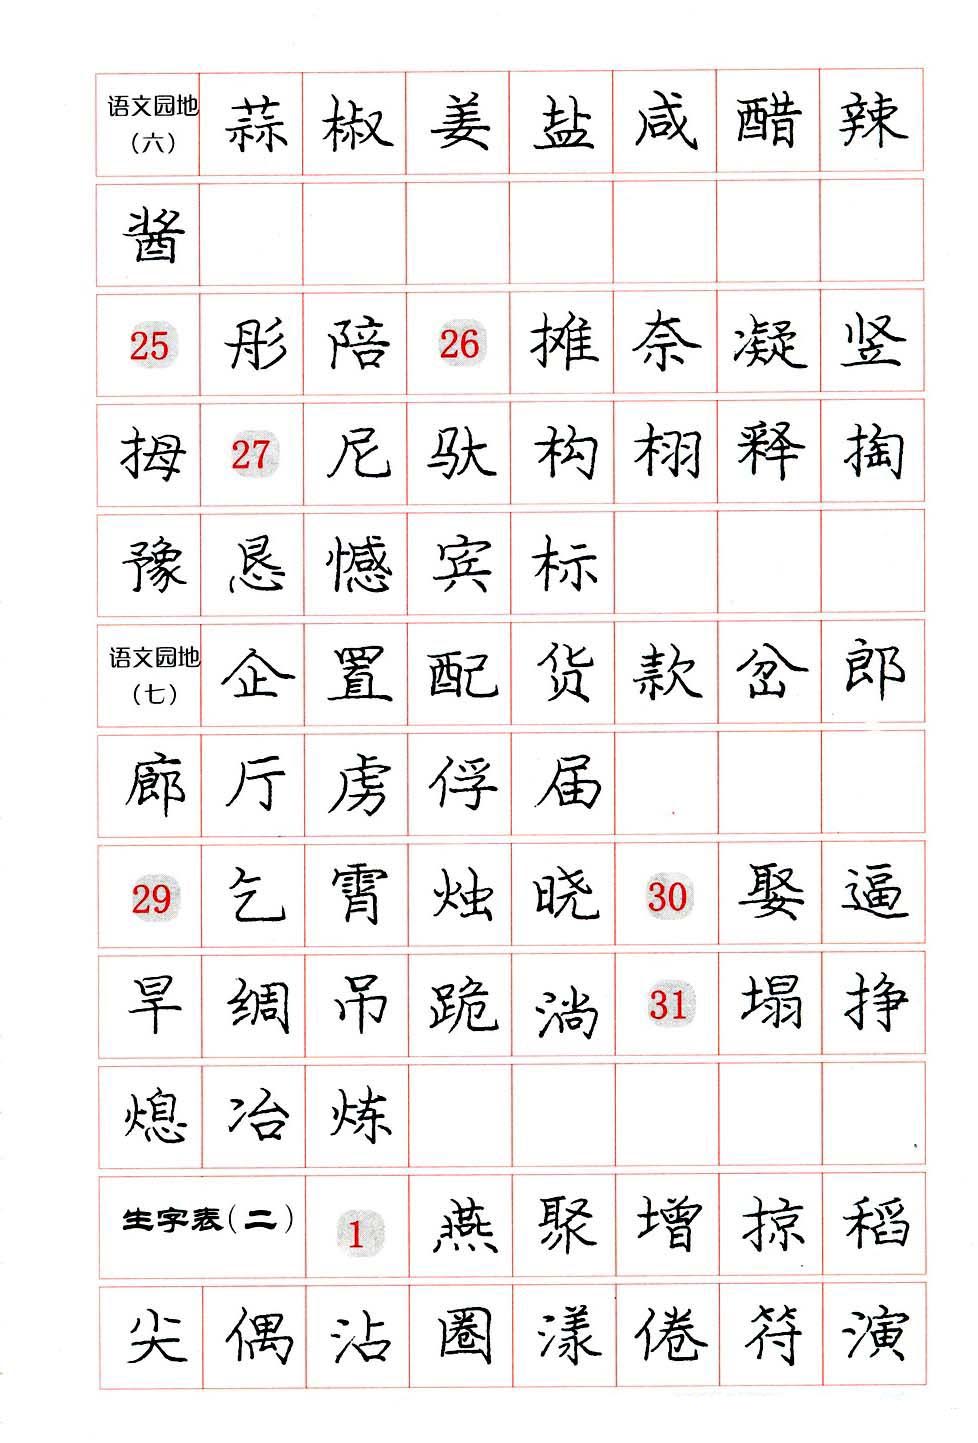 语文园地（六） 蒜 椒 姜 盐 咸 醋 辣
酱
25 彤 陪 26 摊 奈 凝 竖
拇 27 尼 驮 构 栩 释 掏
豫 恳 憾 宾 标
语文园地（七） 企 置 配 货 款 岔 郎
廊 厅 虏 俘 届
29 乞 霄 烛 晓 30 娶 逼
旱 绸 吊 跪 淌 31 塌 挣
熄 冶 炼
生字表（二） 1 燕 聚 增 掠 稻
尖 偶 沾 圈 漾 倦 符 演